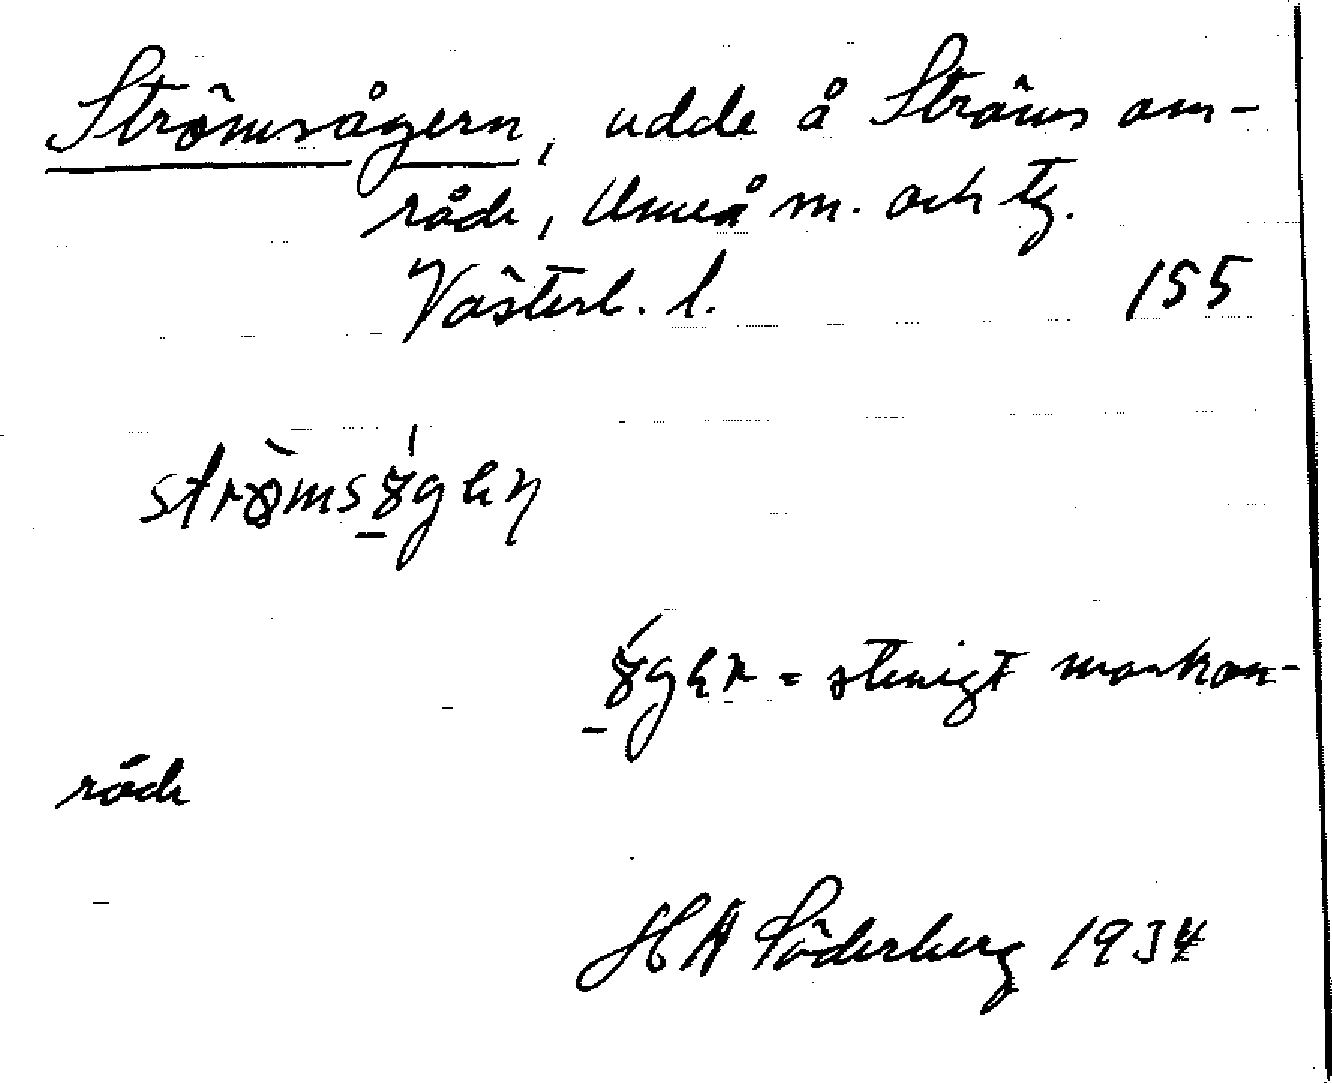 Strömsågern, udde å Ströms om-
råde, Umeå m. och tg.
Västerb. l. 155
strömsøgen
øger = stenigt markom-
råde
HA Söderberg 1934